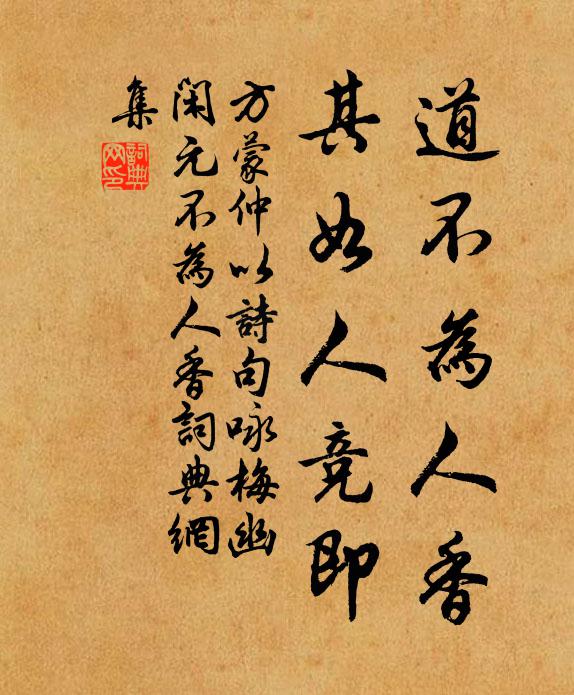 道不為人香
其如人竞即
方蒙仲以詩句咏梅幽
閑元不為人香詞典網
集
詞典
网印